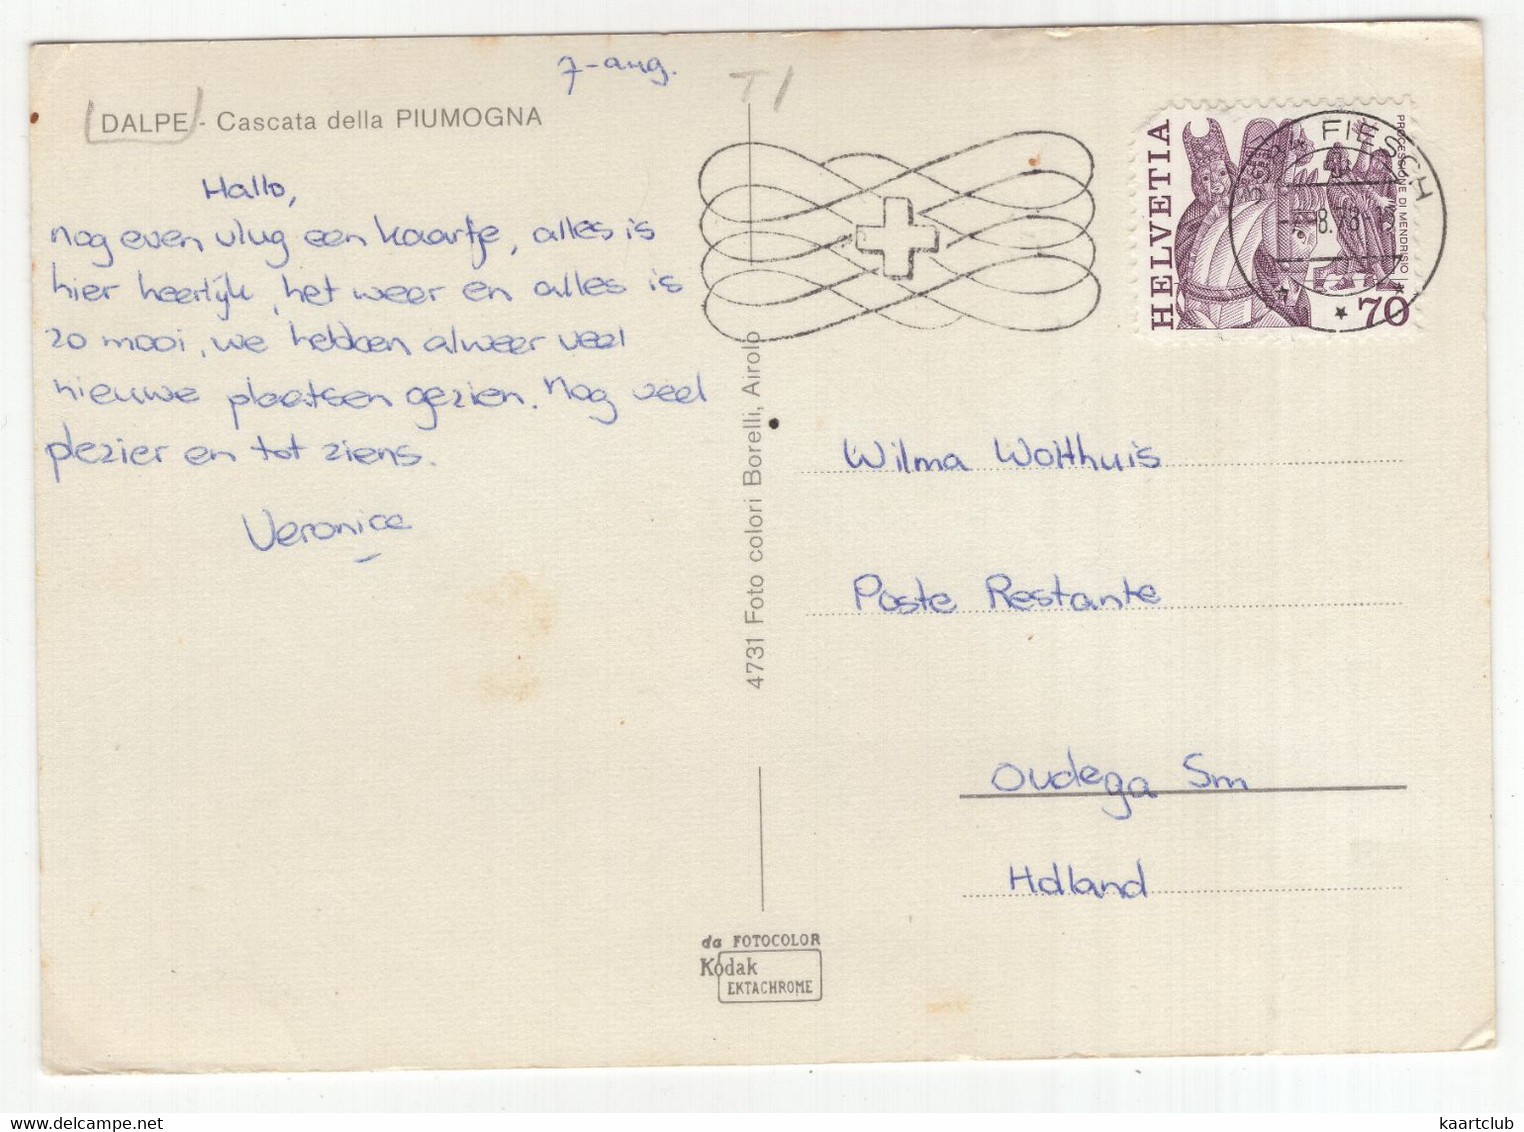 7-aug.
T1
DALPE - Cascata della PIUMOGNA
Hallo,
nog even vlug een kaartje, alles is
hier heerlijk, het weer en alles is
zo mooi, we hebben alweer veel
nieuwe plaatsen gezien. Nog veel
plezier en tot ziens.
Veronice
4731 Foto colori Borelli, Airolo
da FOTOCOLOR
Kodak
EKTACHROME
HELVETIA
PROCESSIONE DI MENDRISIO
70
FIESCH
8.78-
Wilma Wolthuis
Poste Restante
Oudega Sm
Holland
kaartclub